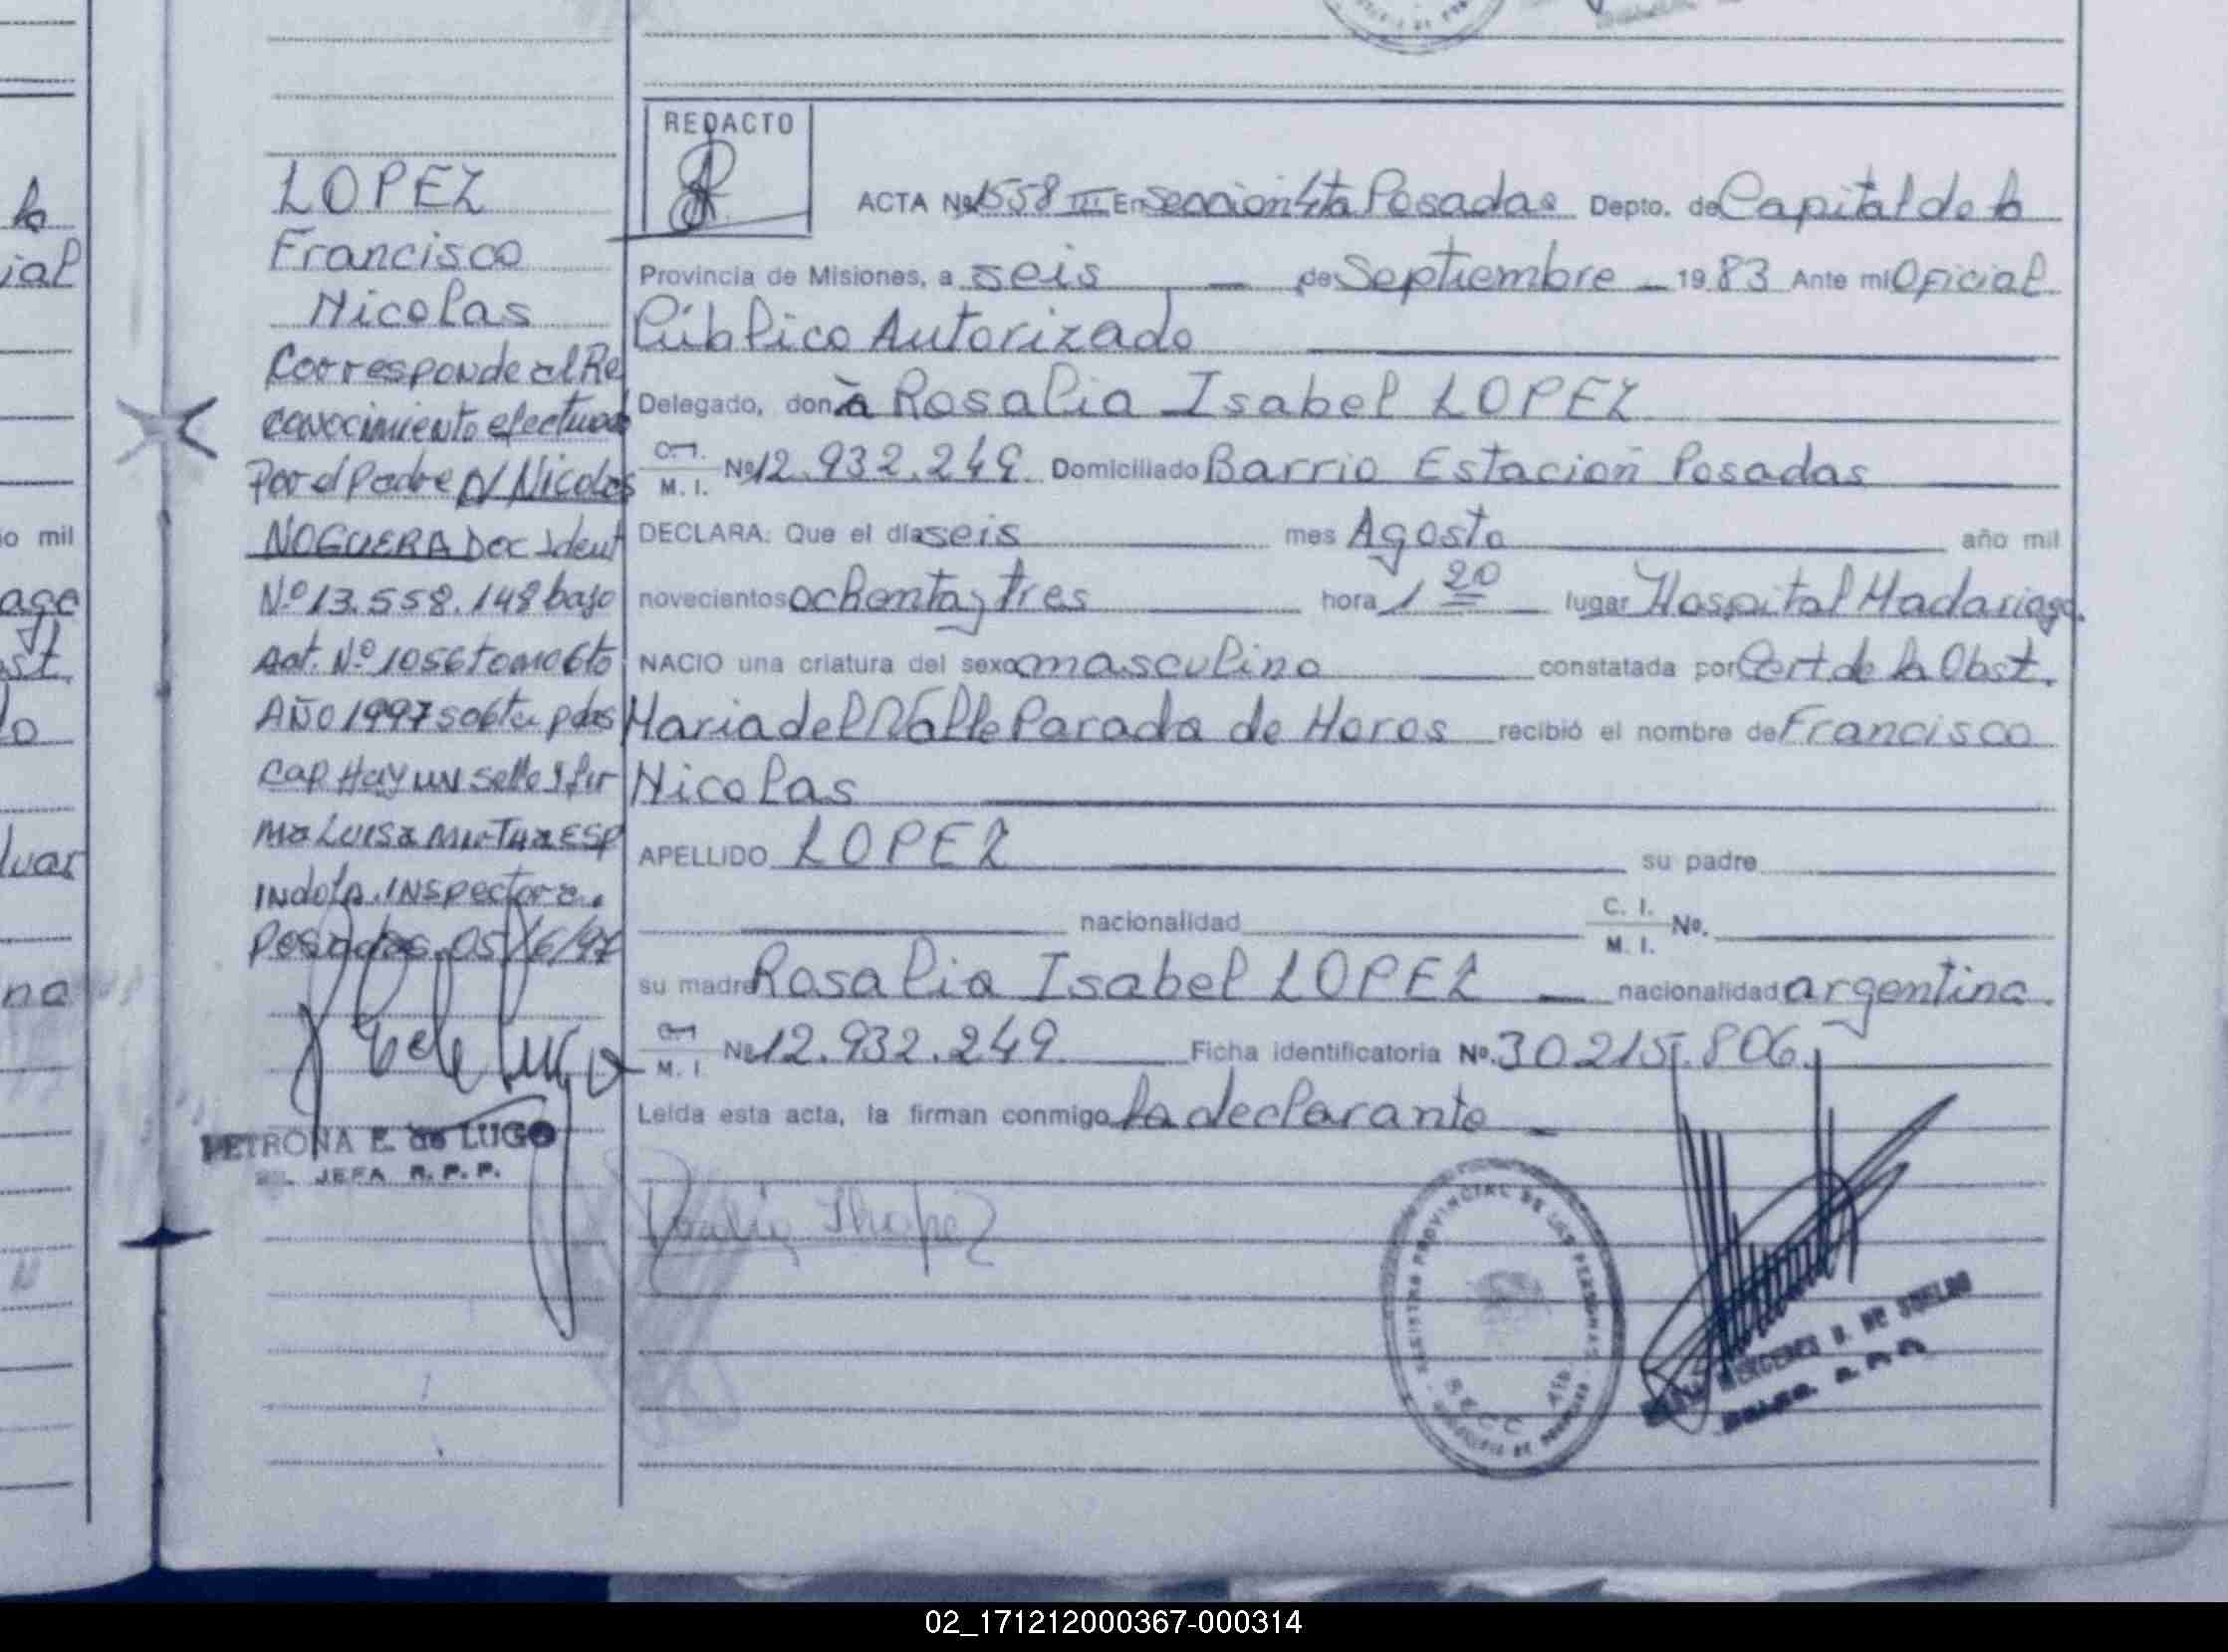 LOPEZ
Francisco
Nicolas
Corresponde al Re
conocimiento efectuado
Por el Padre D/ Nicolas
NOGUERA Doc Ident
Nº 13.558.148 bajo
Act. Nº 1056 tomo 6to
AÑO 1997 so6ta pdas
Cap. Hay un sello y fir
Ma Luisa Mirtha ESP
INdola. INSpectora.
Posadas. 05/6/97
PETRONA E. de LUGO
JEFA R. P. P.
REDACTO
ACTA Nº 1558 III En Seccion 4ta Posadas Depto. de Capital de la
Provincia de Misiones, a seis de Septiembre 19 83 Ante mi Oficial
Público Autorizado
Delegado, doña Rosalia Isabel LOPEZ
M. I. Nº 12.932.249 Domiciliado Barrio Estación Posadas
DECLARA: Que el día seis mes Agosto año mil
novecientos ochenta y tres hora 1 20 lugar Hospital Madariaga.
NACIO una criatura del sexo masculino constatada por Cert de la Obst.
Maria del Valle Parada de Horos recibió el nombre de Francisco
Nicolas
APELLIDO LOPEZ su padre
nacionalidad C. I. M. I. No.
su madre Rosalia Isabel LOPEZ nacionalidad argentina.
M. I. Nº 12.932.249 Ficha identificatoria Nº. 30.215.806.
Leída esta acta, la firman conmigo la declarante
REGISTRO PROVINCIAL DE LAS PERSONAS
MERCEDES
02_171212000367-000314